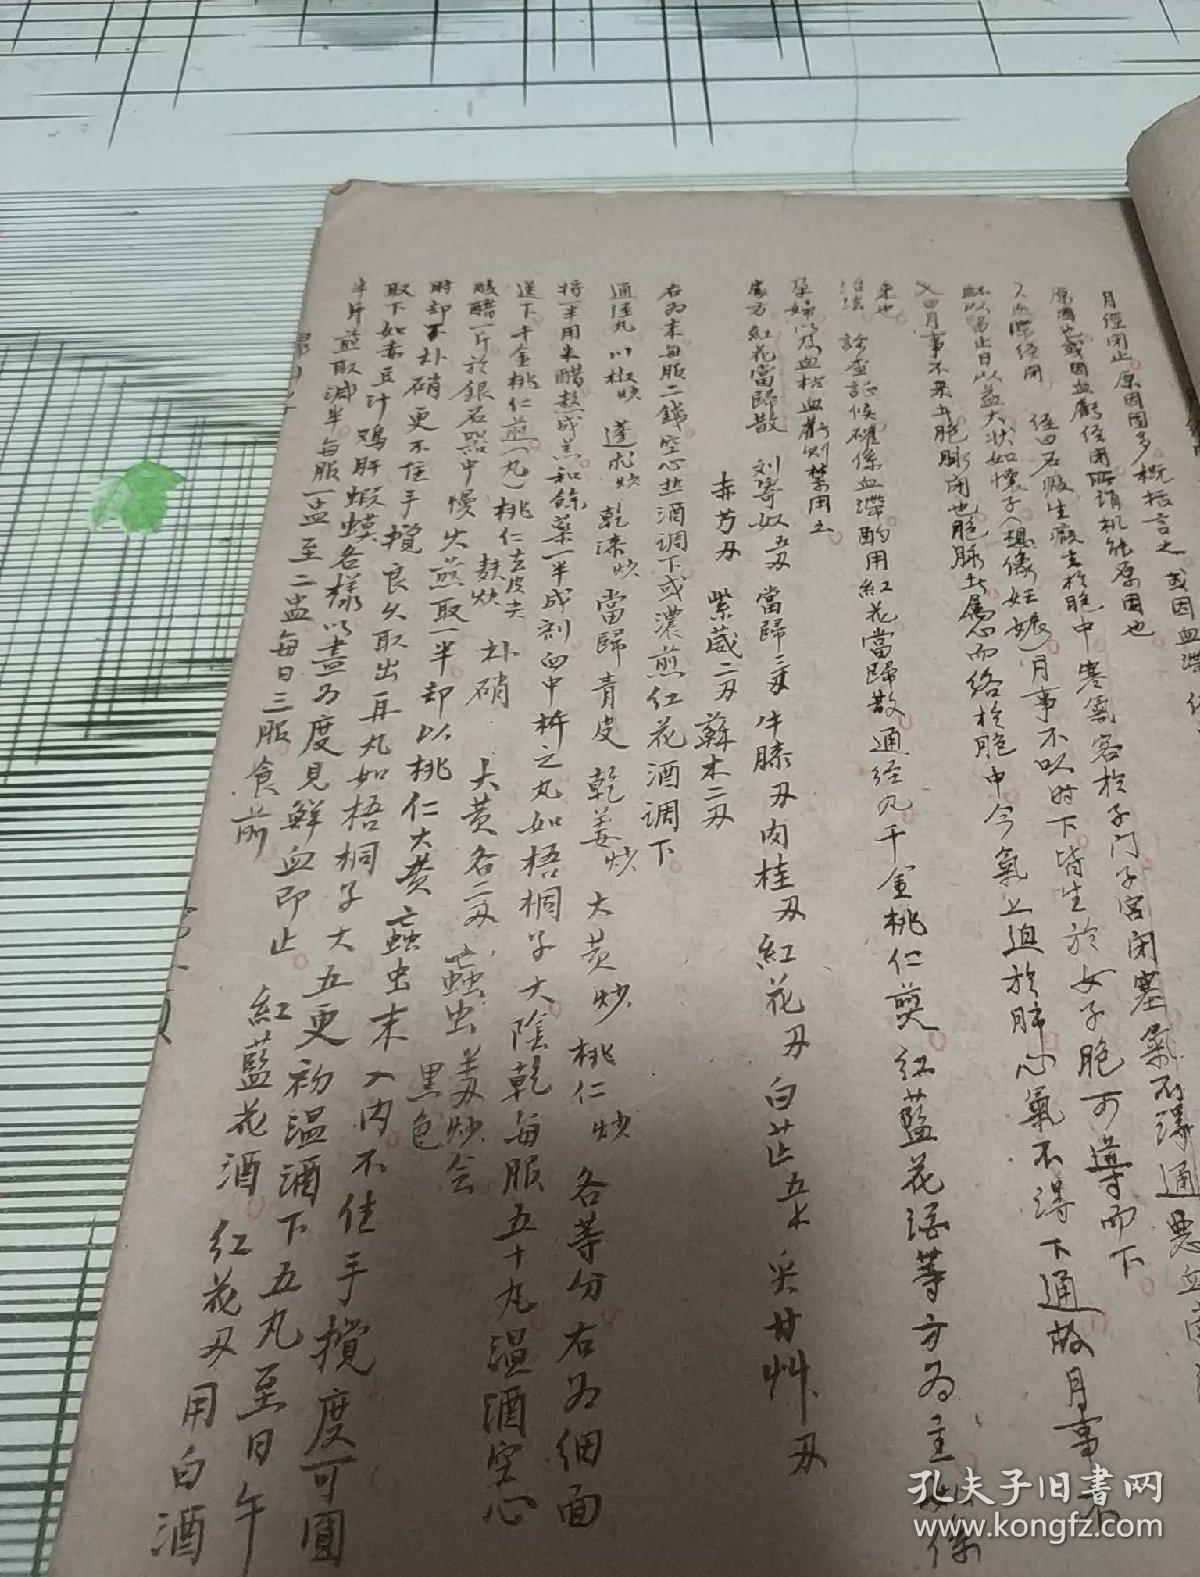 月經閉止 原因固多概括言之 或因血滯
原因也或因血虧經閉所謂机能原因也
經曰石瘕生於胞中寒氣客於子門子宮閉塞氣不得通惡血當
血以留止日以益大狀如懷子(想像妊娠)月事不以时下皆生於女子胞可導而下
又曰月事不来者胞脈閉也胞脈者屬心而络於胞中今氣上迫於肺心氣不得下通故月事不
来也
治法 診查証候確係血滯酌用紅花當歸散通经丸千金桃仁煎 红藍花酒等方為主 係
孕婦 血枯血虧则禁用之
處方 紅花當歸散 刘寄奴五刄 當歸二刄 牛膝刄 肉桂刄 紅花刄 白芷五 甘艸刄
赤芍刄 紫葳二刄 蘇木二刄
右为末每服二錢空心热酒调下或濃煎红花酒调下
通經丸 川椒炒 蓬朮炒 乾漆炒 當歸 青皮 乾姜炒 大黄炒 桃仁炒 各等分右为细面
将一半用米醋熬成羔和餘薬一半成剂臼中杵之丸如梧桐子大陰乾每服五十丸温酒空心
送下 千金桃仁煎(丸) 桃仁去皮尖麸炒 朴硝 大黄各二刄 䗈虫 炒 黑色
酸醋一斤於銀石器中慢火煎取一半却以桃仁大黄䗈虫末入内不住手攪度可圓
时却下朴硝更不住手攪良久取出再丸如梧桐子大五更初温酒下五丸至日午
取下如赤豆汁鸡肝蝦蟆各樣以盡为度見鮮血即止 紅藍花酒 红花刄用白酒
半斤煎取減半每服一盅至二盅每日三服食前
孔夫子旧书网
www.kongfz.com